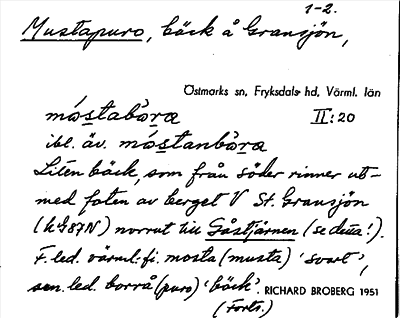 1-2.
Mustapuro, bäck å Gransjön,
Östmarks sn, Fryksdals hd, Värml. län
mástabòra II:20
ibl. äv. mástanbòra
Liten bäck, som från söder rinner ut-
med foten av berget V St. Gransjön
(h 487N) norrut till Gåstjärnen (se detta!).
F. led. värml.-fi. mosta (musta) 'svart',
sen. led. borrå (puro) 'bäck'. RICHARD BROBERG 1951
(Forts.)